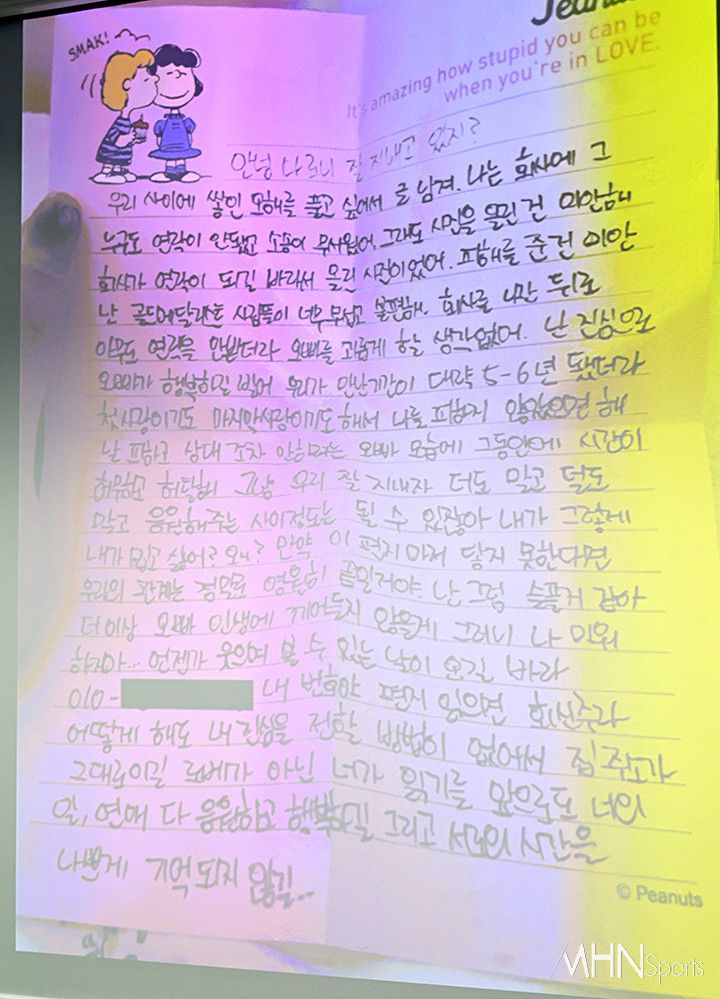 SMAK!
It's amazing how stupid you can be
when you're in LOVE.
안녕 나 잘 지내고 있지?
우리 사이에 쌓인 오해를 풀고 싶어서 글 남겨. 나는 회사에 그
누구도 연락이 안됐고 소송이 무서웠어. 그래도 사진을 올린 건 미안해
회사가 연락이 되길 바라서 올린 사진이었어. 피해를 준 건 미안
난 골드메달리스트 사람들이 너무 무섭고 불편해. 회사를 나간 뒤로
아무도 연락을 안받더라 오빠를 괴롭게 할 생각없어. 난 진심으로
오빠가 행복하길 빌어 우리가 만난기간이 대략 5-6년 됐더라
첫사랑이기도 마지막사랑이기도해서 나를 피하지 않았으면 해
날 피하고 상대 조차 안하려는 오빠 모습에 그동안에 시간이
허무하고 허탈해 그냥 우리 잘 지내자 더도 말고 덜도
말고 응원해주는 사이정도는 될 수 있잖아 내가 그렇게
내가 밉고 싫어? 왜? 만약 이 편지마저 닿지 못한다면
우리의 관계는 정말로 영원히 끝일거야 난 그럼 슬플거 같아
더이상 오빠 인생에 끼어들지 않을게 그러니 나 미워
하지마... 언젠가 웃으며 볼 수 있는 날이 오길 바라
010- 내 번호야 편지 읽으면 회신주라
어떻게 해도 내 진심을 전할 방법이 없어서 집 주소가
그대로이길 로베가 아닌 너가 읽기를 앞으로도 너의
일, 연애 다 응원하고 행복하길 그리고 서로의 시간을
나쁘게 기억되지 않길..
© Peanuts
MHNSports